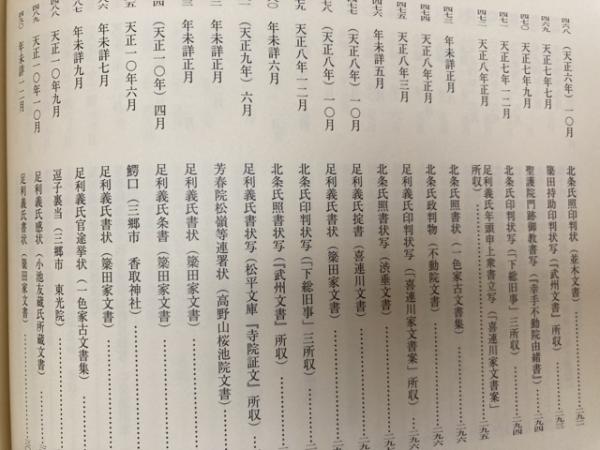 四六八 (天正六年)一〇月 北条氏照印判状(並木文書)
四六九 天正七年七月 簗田持助印判状写(『武州文書』所収)
聖護院門跡御教書写(『幸手不動院由緒書』)
四七一 天正七年一二月 北条氏印判状写(「下総旧事」三所収)
四七二 天正八年正月 足利義氏年頭申上衆書立写(「喜連川家文書案」
所収)
四七三 年未詳正月 北条氏照書状(一色家古文書集)
四七四 年未詳正月 北条氏政判物(不動院文書)
四七五 天正八年三月 足利義氏印判状写(「喜連川家文書案」所収)
四七六 年未詳五月 北条氏照書状写(渋垂文書)
四七七 (天正八年)一〇月 足利義氏掟書(喜連川文書)
(天正八年)一〇月 足利義氏書状(簗田家文書)
天正八年一二月 北条氏印判状写(「下総旧事」三所収)
年未詳六月 北条氏照書状写(『武州文書』所収)
(天正九年)六月 足利義氏書状写(松平文庫『寺院証文』所収)
年未詳正月 芳春院松嶺等連署状(高野山桜池院文書)
年未詳正月 足利義氏書状(簗田家文書)
(天正一〇年)四月 足利義氏条書(簗田家文書)
天正一〇年六月 鰐口(三郷市 香取神社)
年未詳七月 足利義氏官途挙状(一色家古文書集)
年未詳九月 逗子裏当(三郷市 東光院)
四八八 天正一〇年九月
四八九 天正一〇年一〇月 足利義氏感状(小池友蔵氏所蔵文書)
四九〇 年未詳一二月 足利義氏書状(簗田家文書)